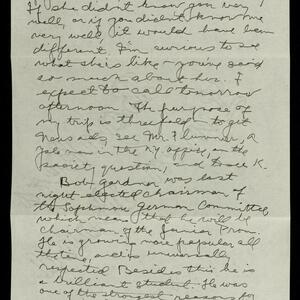 If she didn't know you very
well, or if you didn't know me
very well, it would have been
different. I'm curious to see
what she's like - you've said
so much about her. I
expect to call tomorrow
afternoon. The purpose of
my trip is threefold - to get
news ads, see Mr. Plummer, a
Yale man in the N.Y. office, on the
society question, and to see K.
Bob Gardner was last
night elected chairman of
the Sophomore German Committee,
which means that he will be
chairman of the Junior Prom.
He is growing more popular all
the time, and is universally
respected. Besides this he is
a brilliant student. He was
one of the strongest reasons for